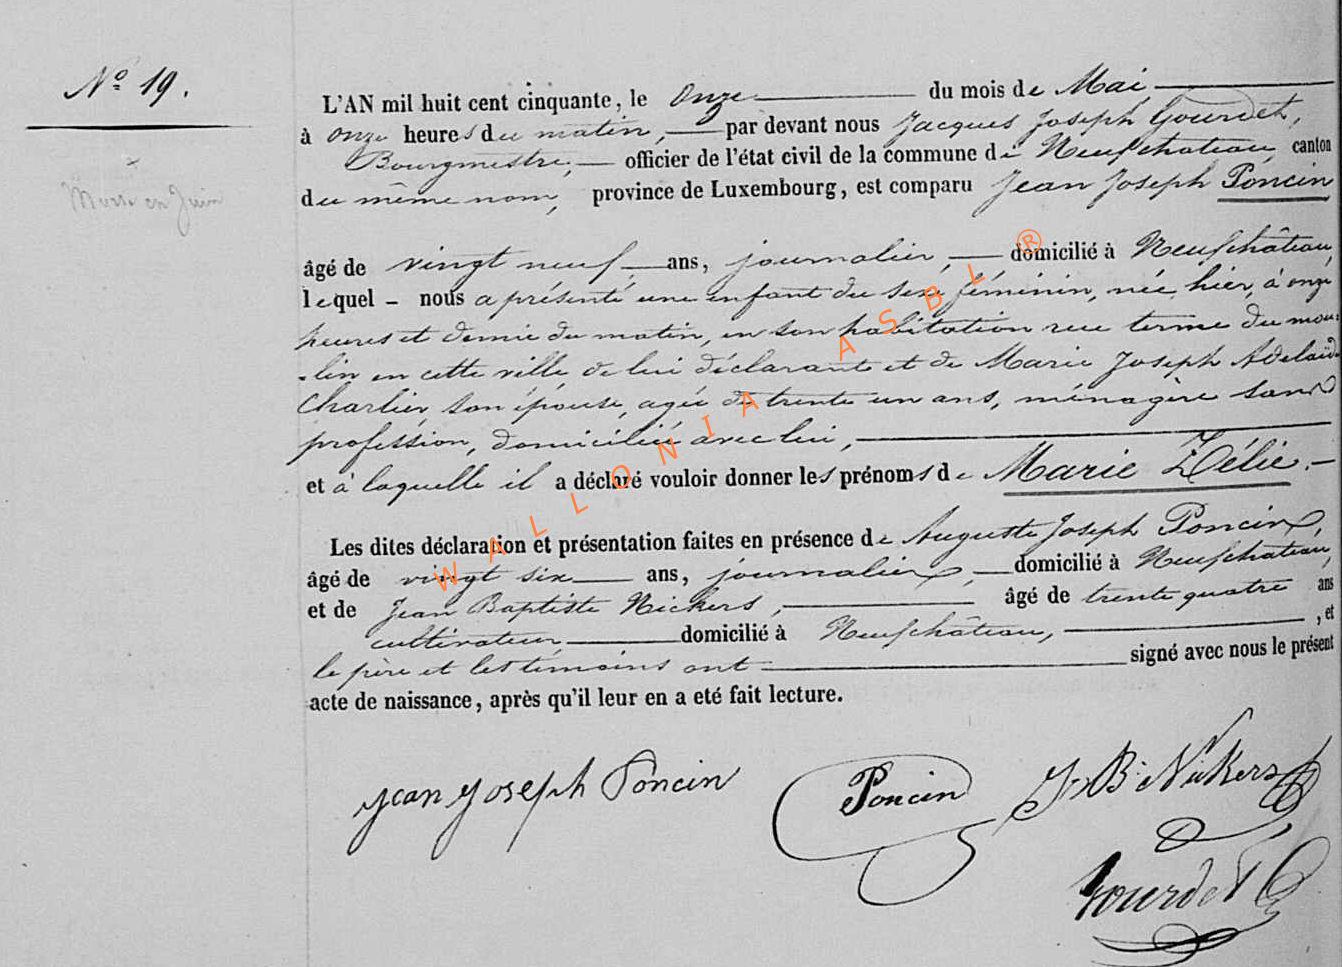 N° 19.
L'AN mil huit cent cinquante, le onze du mois de Mai
à onze heures du matin, par devant nous Jacques Joseph Gourdet,
Bourgmestre, officier de l'état civil de la commune de Neufchateau, canton
du même nom, province de Luxembourg, est comparu Jean Joseph Poncin
âgé de vingt neuf ans, journalier, domicilié à Neufchâteau,
lequel - nous a présenté une enfant du sexe féminin, née hier, à onze
heures et demie du matin, en son habitation rue terme du mou-
-lin en cette ville de lui déclarant et de Marie Joseph Adelaïde
Charlier, son épouse, agée de trente un ans, ménagère sans
profession, domiciliée avec lui,
et à laquelle il a déclaré vouloir donner les prénoms de Marie Zélie.
Les dites déclaration et présentation faites en présence de Auguste Joseph Poncin,
âgé de vingt six ans, journalier, domicilié à Neufchateau,
et de Jean Baptiste Nickers, âgé de trente quatre ans
cultivateur, domicilié à Neufchâteau, , et
le père et les témoins ont signé avec nous le présent
acte de naissance, après qu'il leur en a eté fait lecture.
Jean Joseph Poncin Poncin J. B. Nickers
Gourdet
WALLONIA ASBL ®